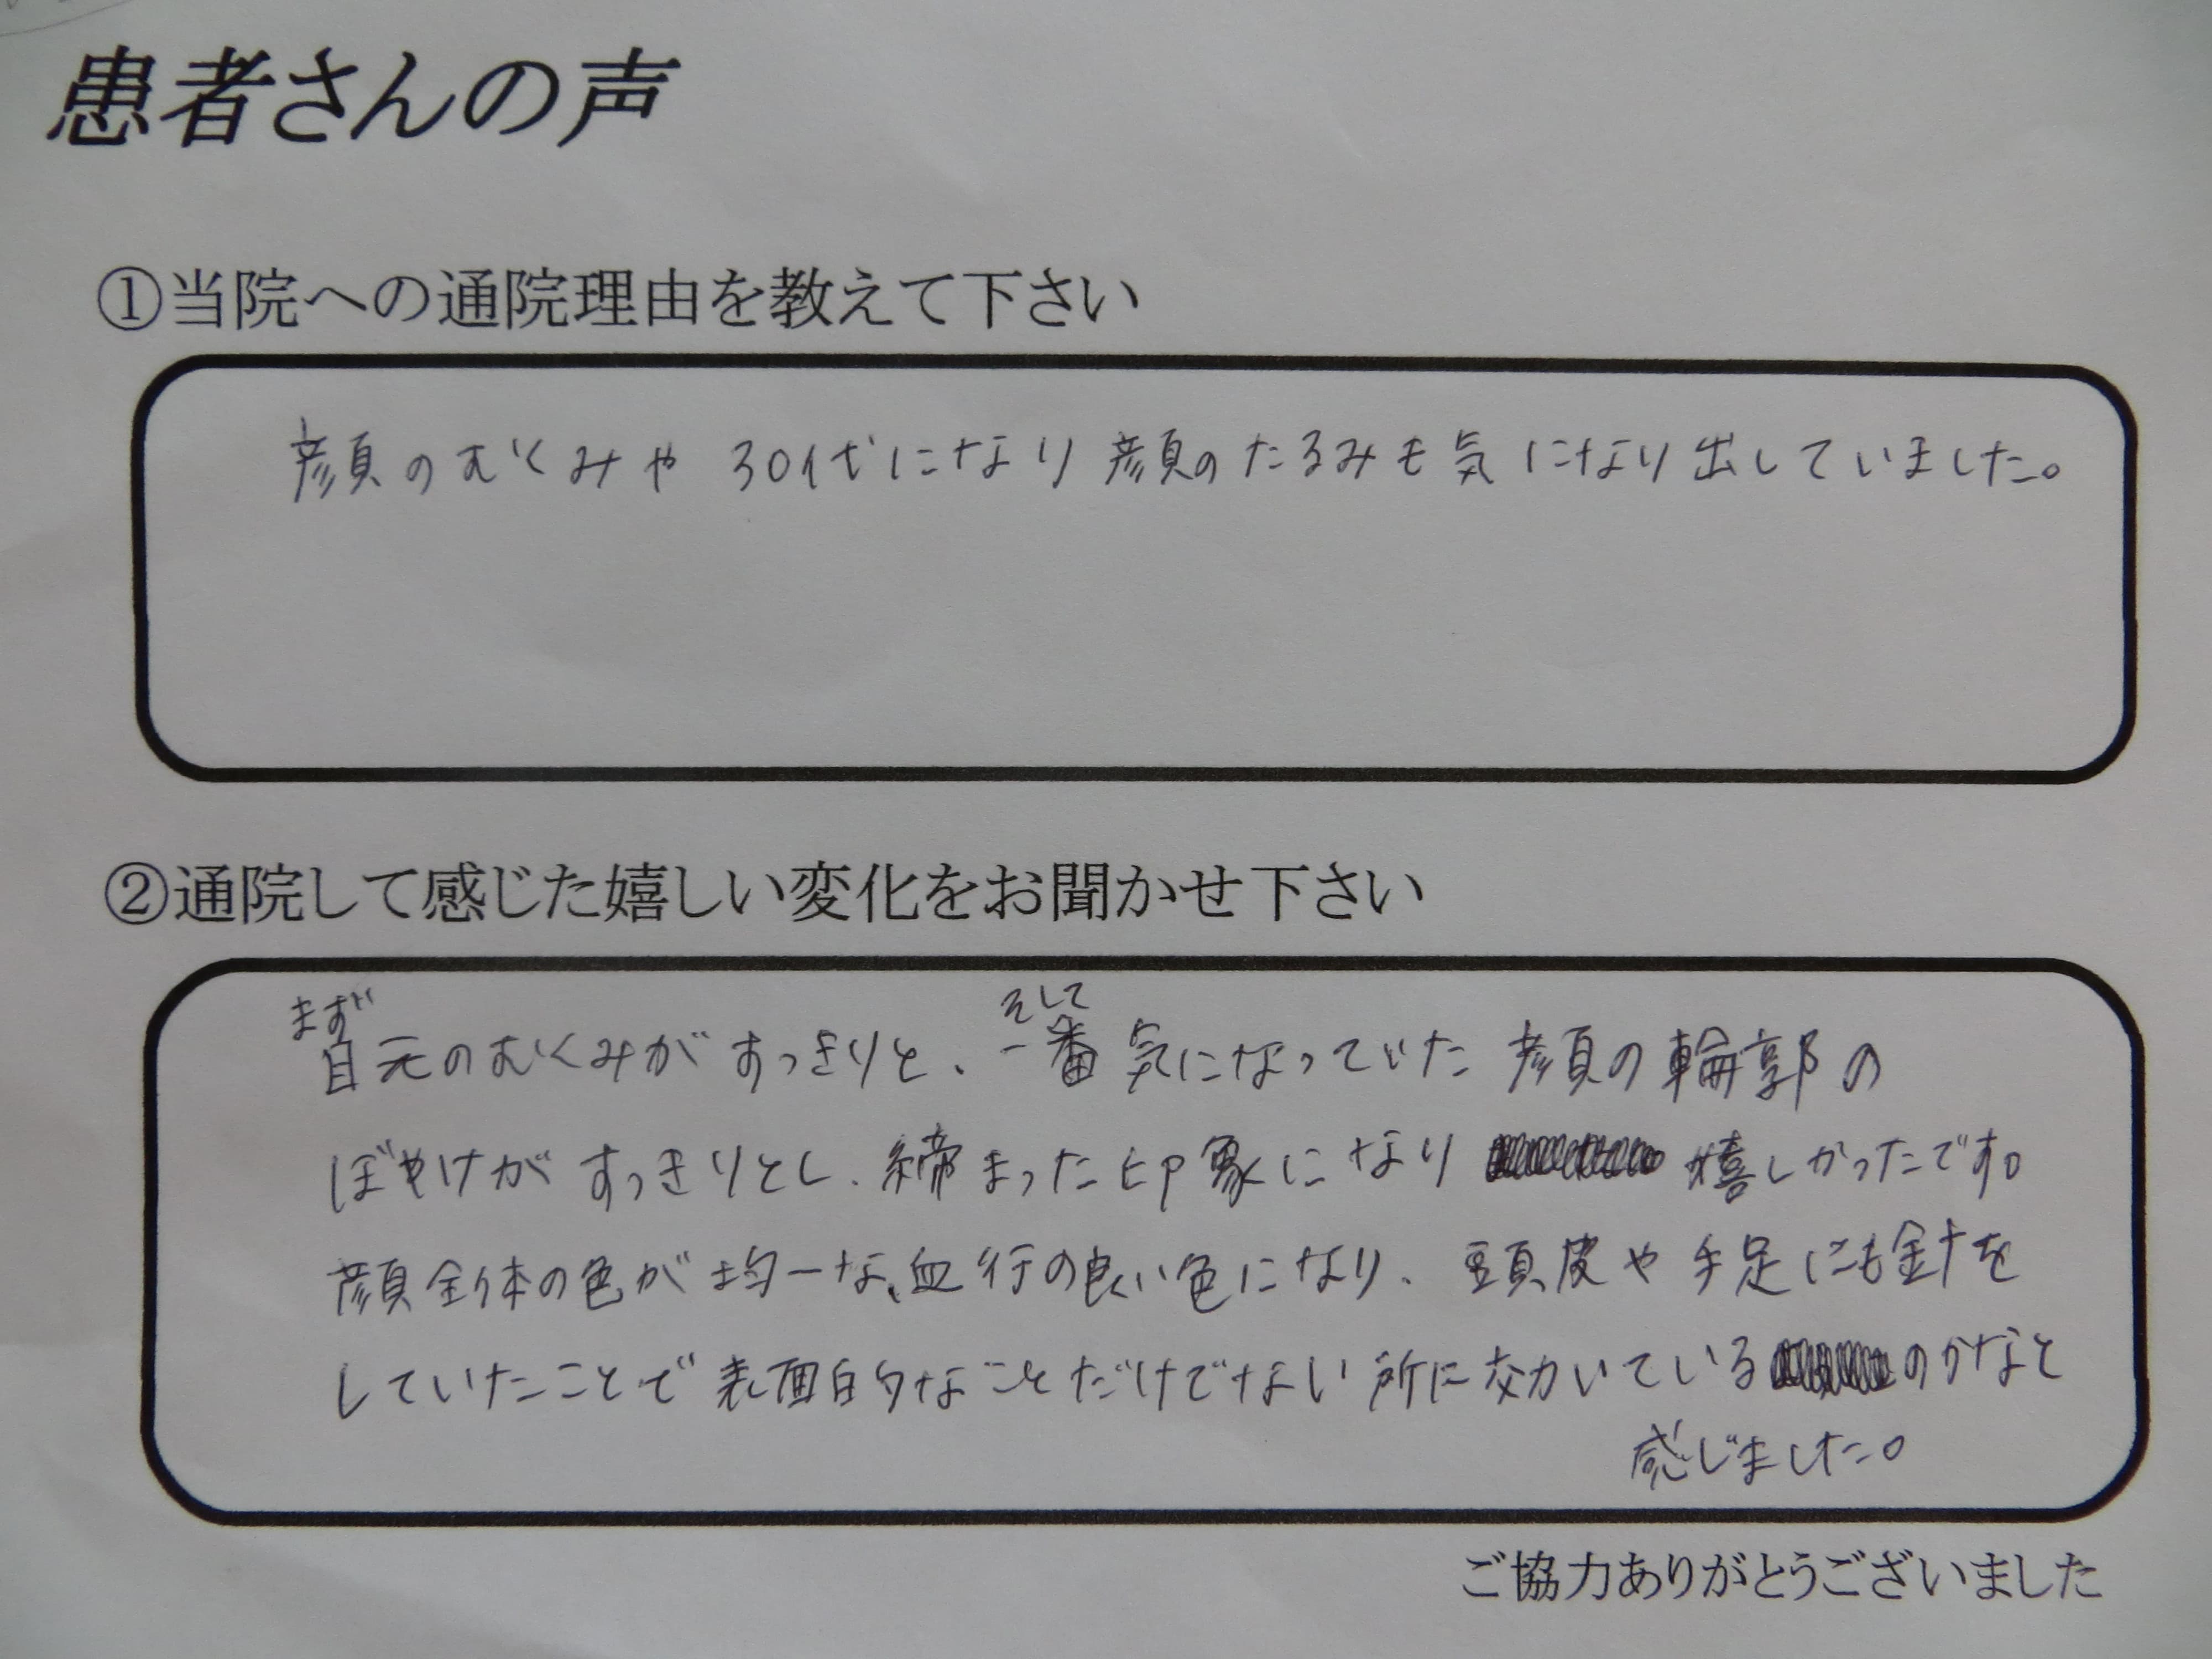 患者さんの声
①当院への通院理由を教えて下さい
顔のむくみや30代になり顔のたるみも気になり出していました。
②通院して感じた嬉しい変化をお聞かせ下さい
まず目元のむくみがすっきりと、そして一番気になっていた顔の輪郭の
ぼやけがすっきりとし、締まった印象になり嬉しかったです。
顔全体の色が均一な、血行の良い色になり、頭皮や手足にも針を
していたことで表面的なことだけでない所に効いているのかなと
感じました。
ご協力ありがとうございました